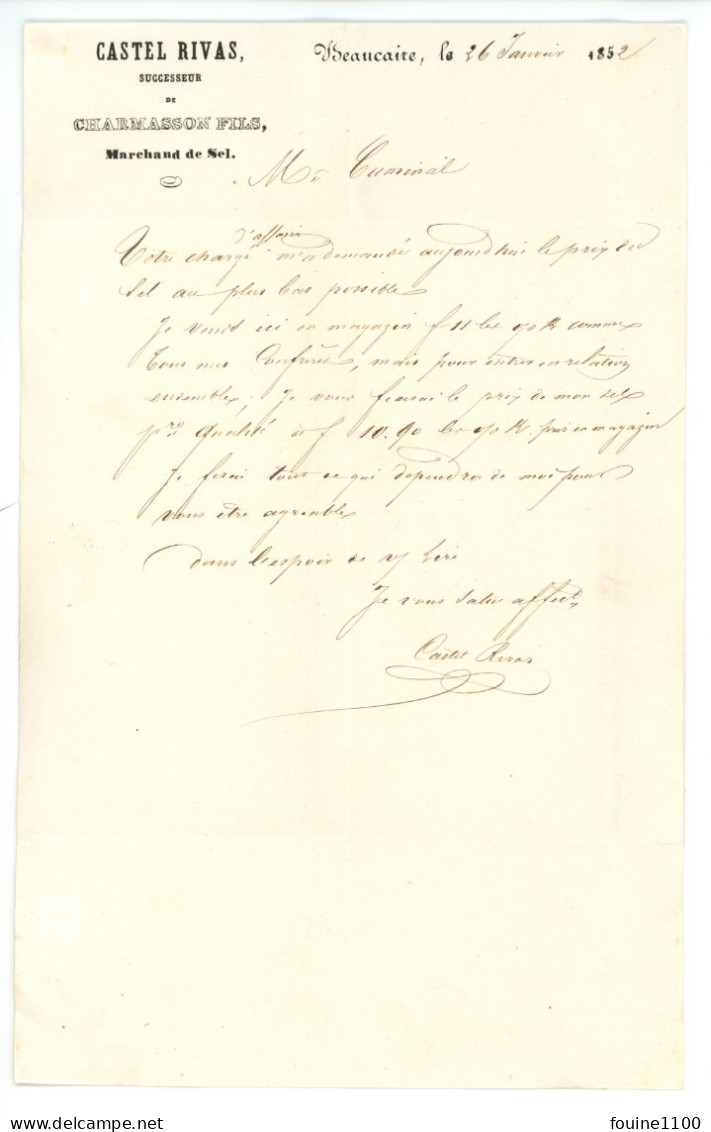 CASTEL RIVAS,
SUCCESSEUR
DE
CHARMASSON FILS,
Marchand de Sel.
Beaucaire, le 26 Janvier 1852
Mr Cuminal
Votre chargé d'affaire m'a demandé aujourdhui le prix du
sel au plus bas possible
Je vends ici en magazin f 11 les 90 K comme
tous mes Confrères, mais pour entrer en relation
ensemble, Je vous ferai le prix de mon sel
pre qualité à f 10.90 les 90 K pris en magazin
Je ferai tout ce qui dependra de moi pour
vous être agreable
dans l'espoir de vs lire
Je vous salue affect
Castel Rivas
delcampe.net
fouine1100